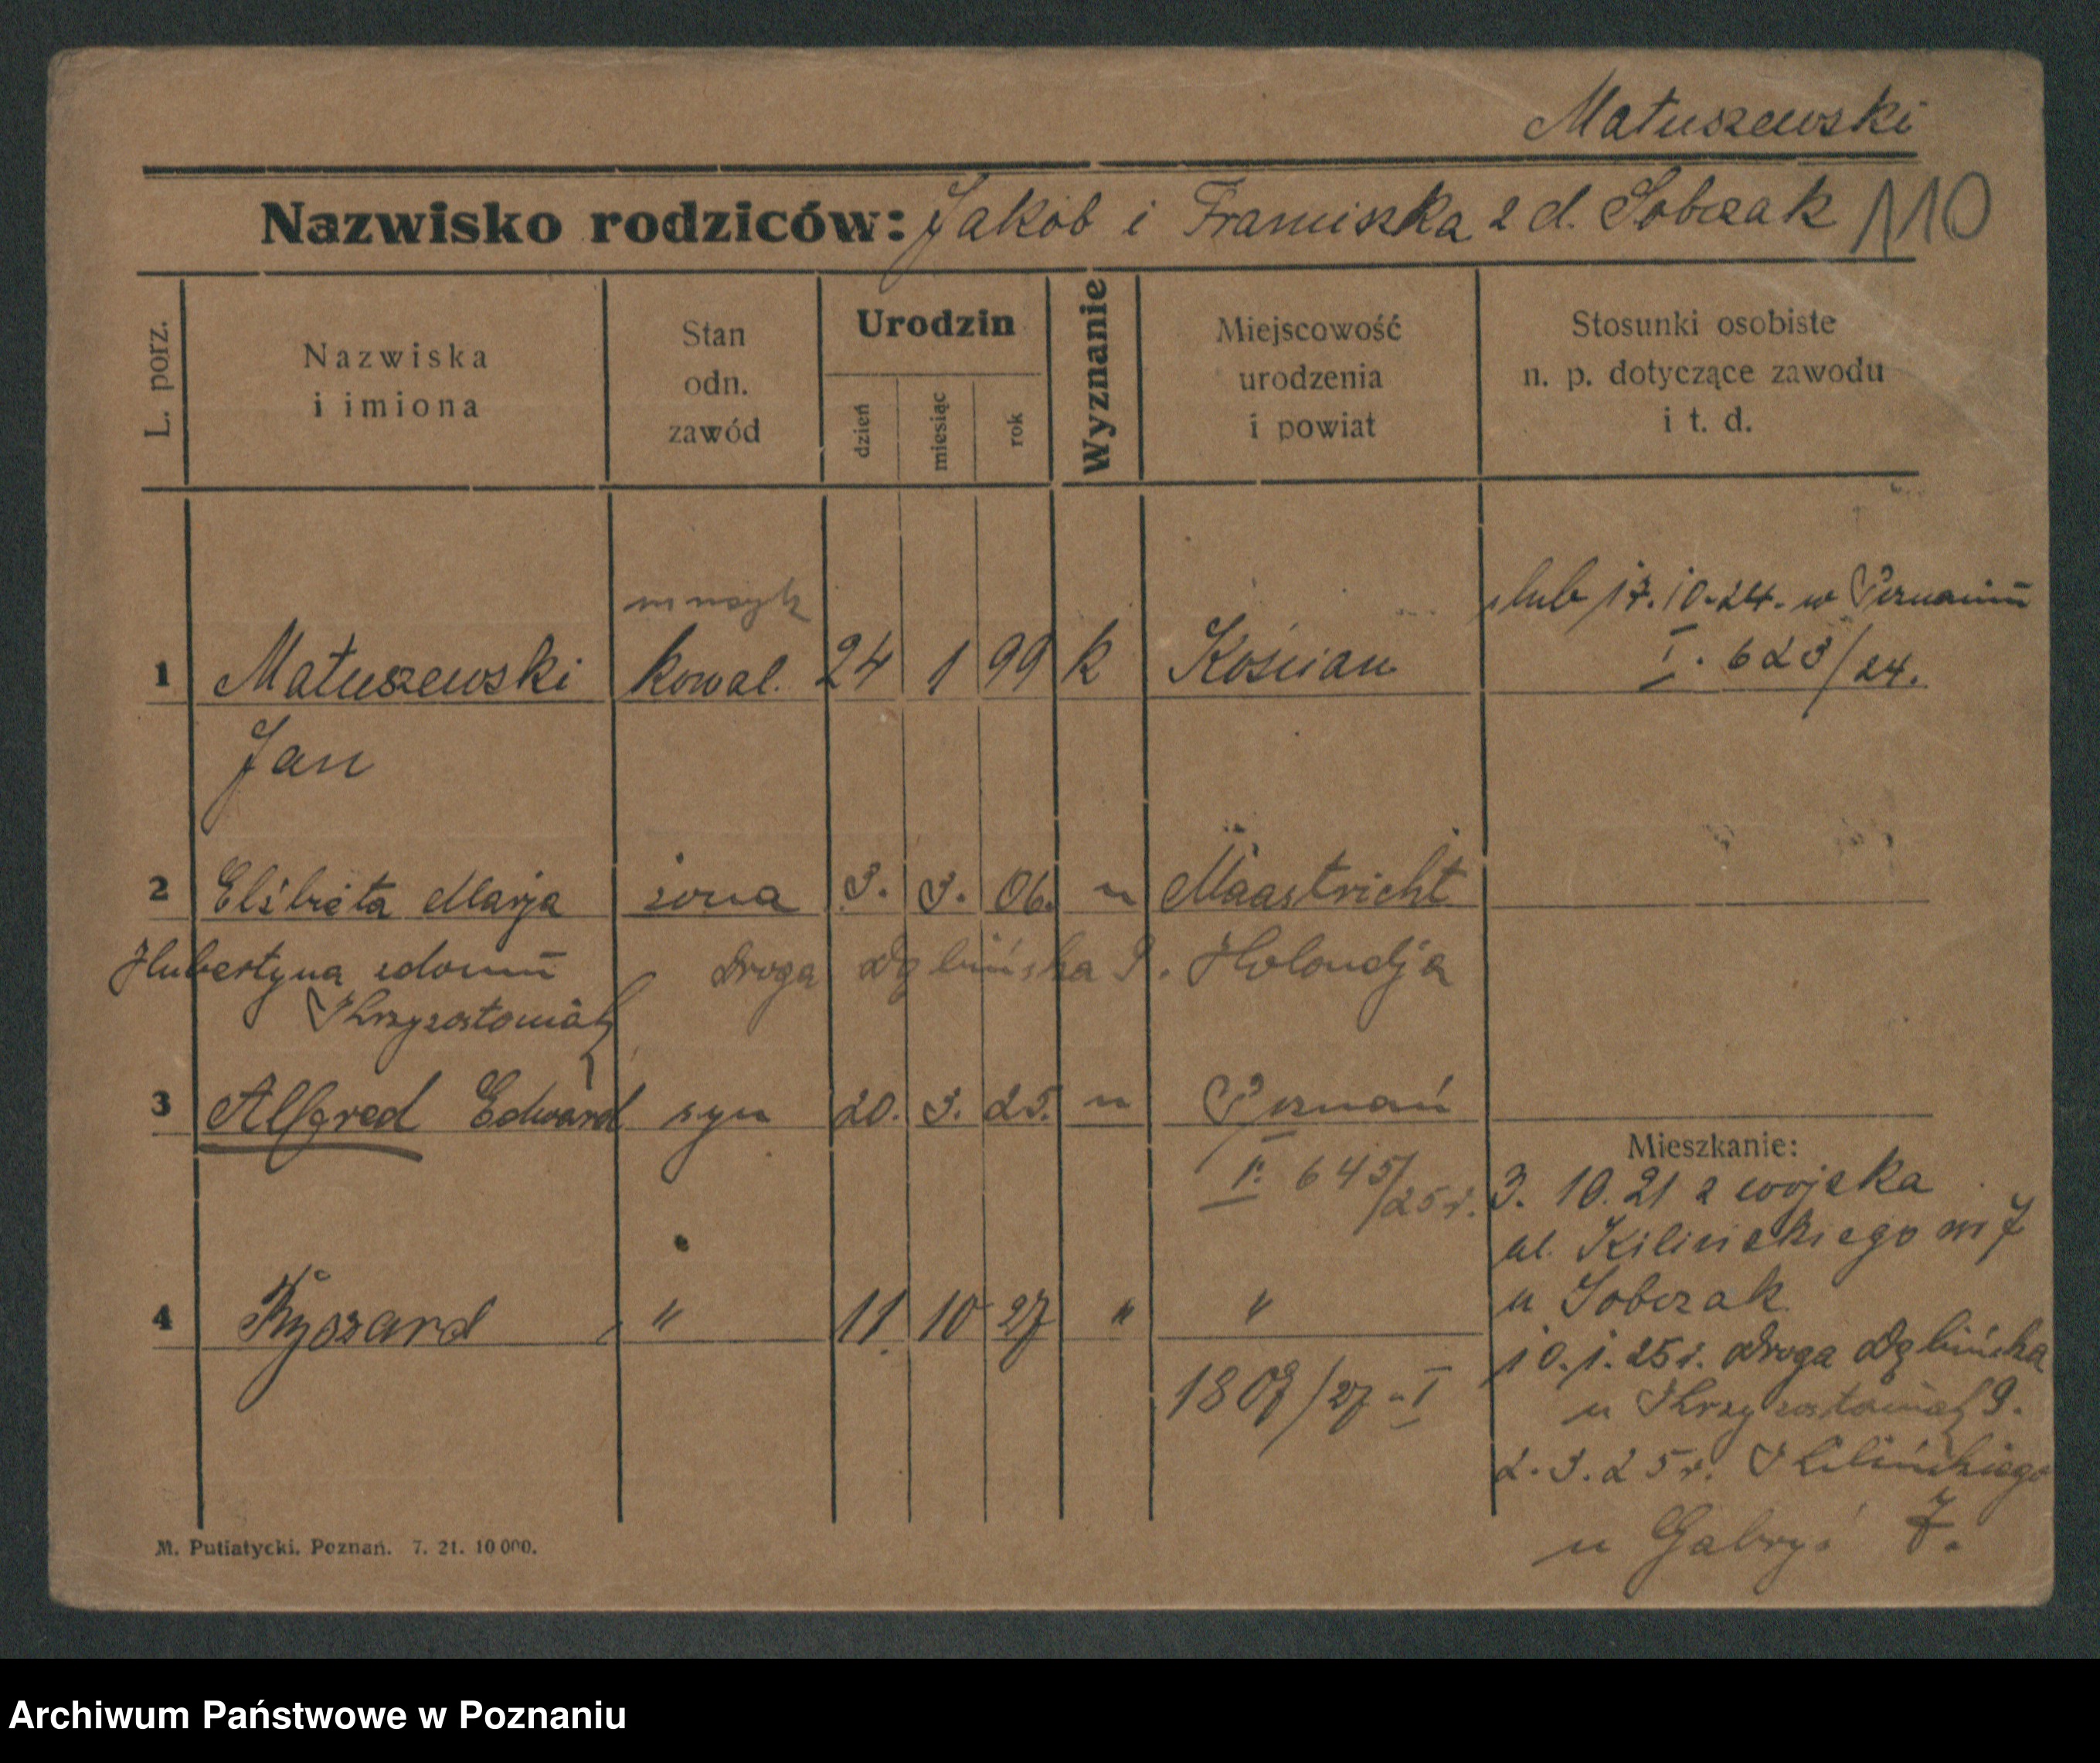 Matuszewski
Nazwisko rodziców: Jakób i Franciszka z d. Sobczak 110
L. porz.
Nazwiska i imiona
Stan odn. zawód
Urodzin
dzień miesiąc rok
Wyznanie
Miejscowość urodzenia i powiat
Stosunki osobiste n. p. dotyczące zawodu i t. d.
muzyk
ślub 17.10.24. w Poznaniu
1 Matuszewski kowal. 24 1 99 k Kościan I. 623/24.
Jan
2 Elżbieta Marja żona 3. 3. 06. " Maastricht
Hubertyna zdomu Droga Dęblińska 9. Holandja
3 Alfred Edward syn 20. 3. 25. " Poznań
I. 645/25r.
4 Ryszard " 11. 10 27 " "
1807/27 - I
Mieszkanie:
3. 10. 21 z wojska
ul. Kilińskiego nr 7
u Sobczak
10.1.25r. Droga Dęblińska
u 9.
2.3.25r. Kilińskiego
u Gabryś 7.
M. Putiatycki, Poznań. 7. 21. 10 000.
Archiwum Państwowe w Poznaniu